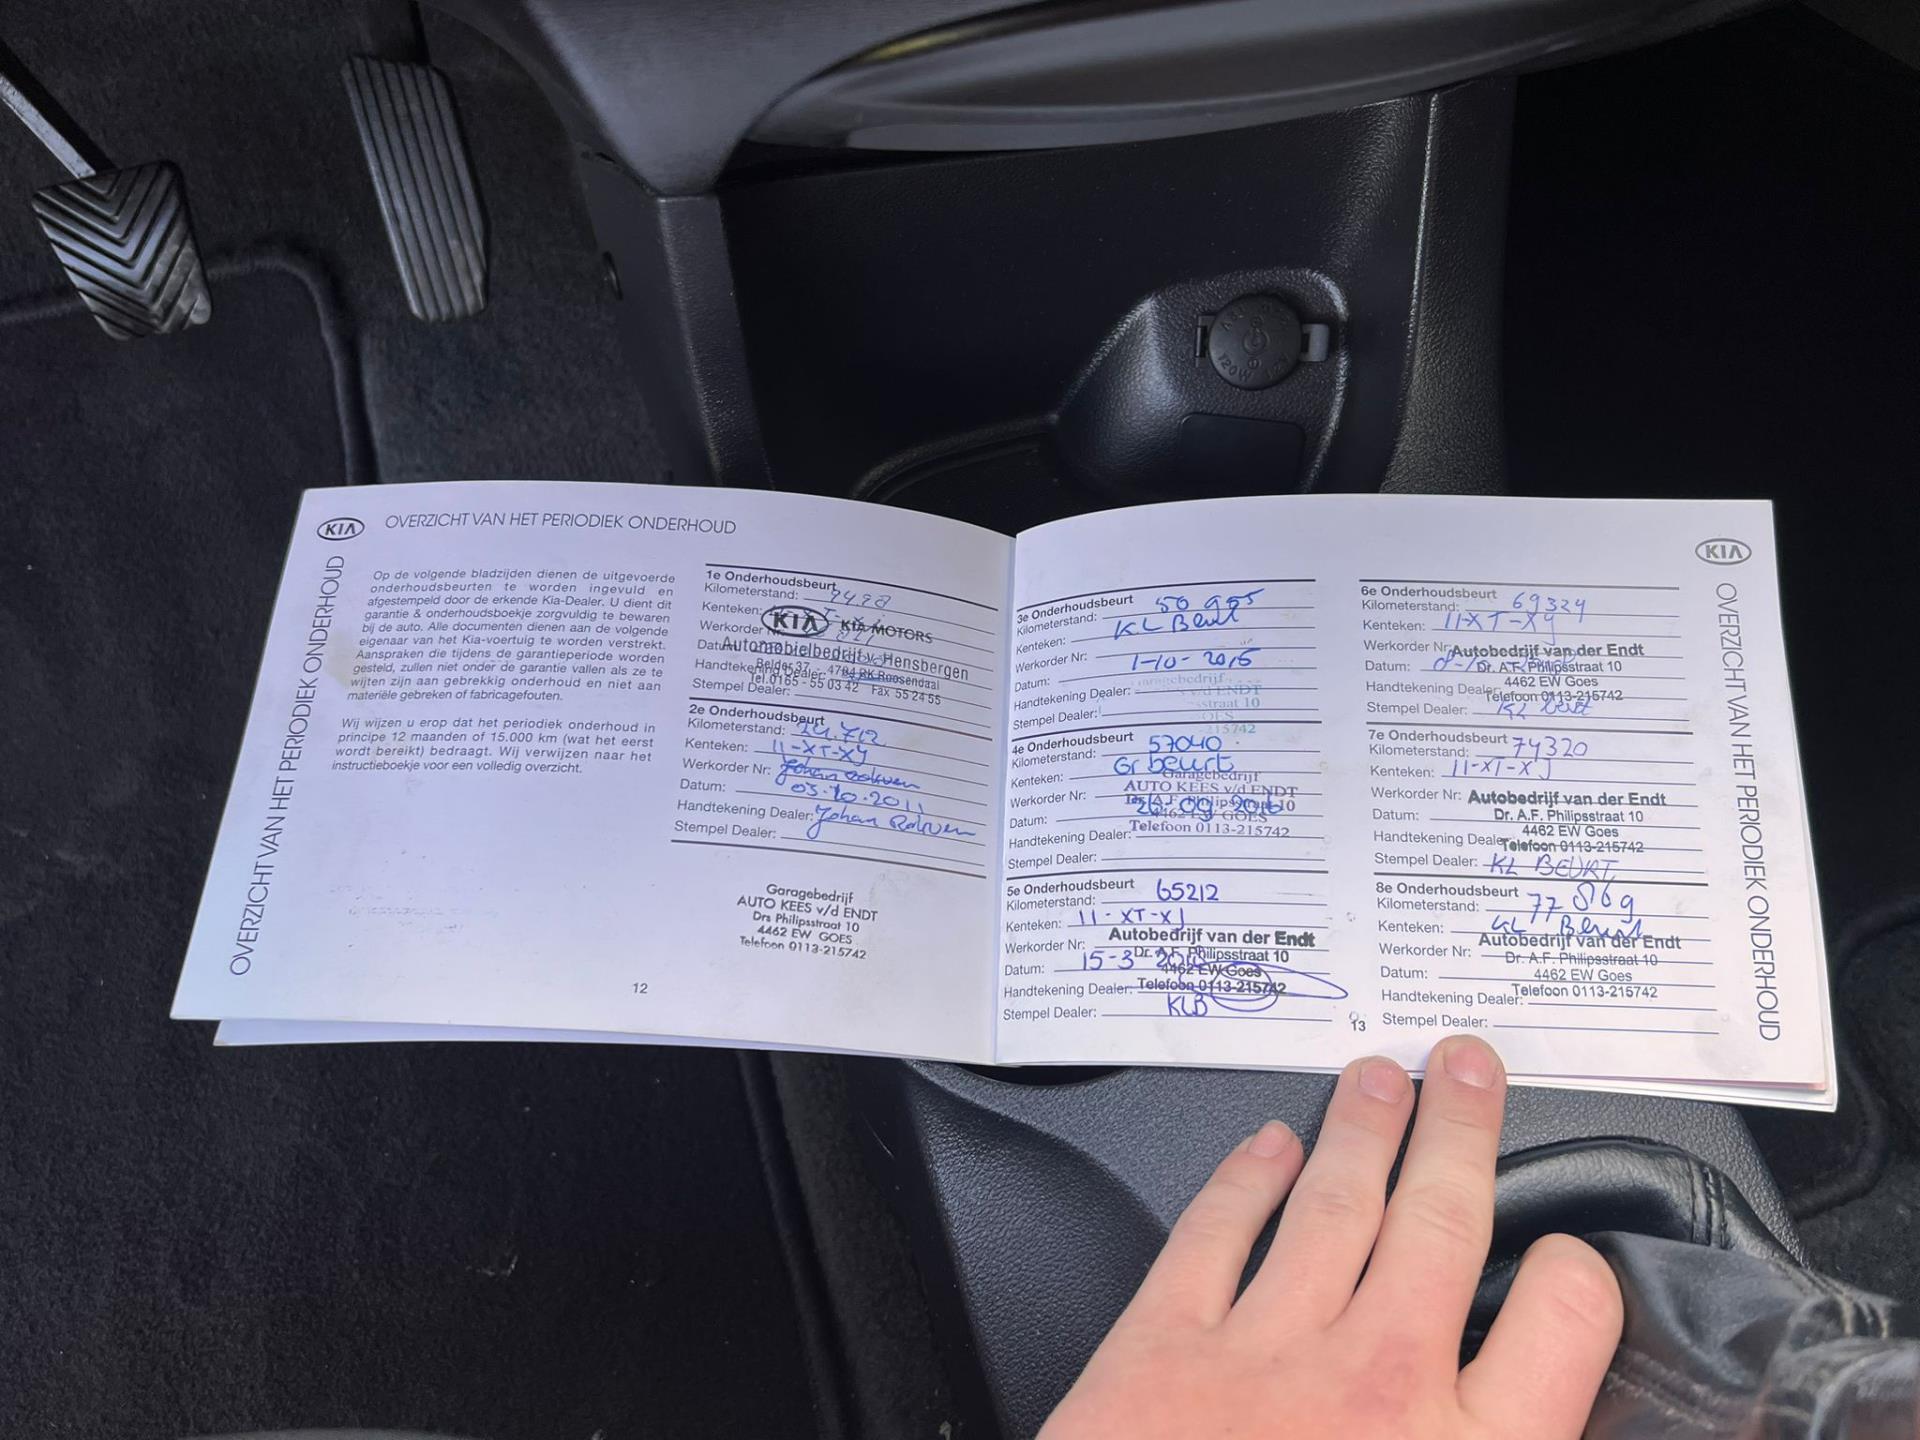 KIA
OVERZICHT VAN HET PERIODIEK ONDERHOUD
OVERZICHT VAN HET PERIODIEK ONDERHOUD
Op de volgende bladzijden dienen de uitgevoerde
onderhoudsbeurten te worden ingevuld en
afgestempeld door de erkende Kia-Dealer. U dient dit
garantie & onderhoudsboekje zorgvuldig te bewaren
bij de auto. Alle documenten dienen aan de volgende
eigenaar van het Kia-voertuig te worden verstrekt.
Aanspraken die tijdens de garantieperiode worden
gesteld, zullen niet onder de garantie vallen als ze te
wijten zijn aan gebrekkig onderhoud en niet aan
materiële gebreken of fabricagefouten.
Wij wijzen u erop dat het periodiek onderhoud in
principe 12 maanden of 15.000 km (wat het eerst
wordt bereikt) bedraagt. Wij verwijzen naar het
instructieboekje voor een volledig overzicht.
12
1e Onderhoudsbeurt
Kilometerstand:
Kenteken:
Werkorder
Handtekening Dealer:
Stempel Dealer:
KIA KIA MOTORS
Automobielbedrijf v. Hensbergen
Belder 37 - 4704 RK Roosendaal
Tel. 0165 - 55 03 42 Fax 55 24 55
2e Onderhoudsbeurt
Kilometerstand: 24.712
Kenteken: 11-XT-XJ
Werkorder Nr: Johan
Datum: 03.10.2011
Handtekening Dealer: Johan
Stempel Dealer:
Garagebedrijf
AUTO KEES v/d ENDT
Drs Philipsstraat 10
4462 EW GOES
Telefoon 0113-215742
3e Onderhoudsbeurt
Kilometerstand: 50 955
Kenteken: KL Beurt
Werkorder Nr: 1-10-2015
Datum:
Handtekening Dealer:
Stempel Dealer:
Garagebedrijf
v/d ENDT
sstraat 10
GOES
215742
4e Onderhoudsbeurt
Kilometerstand: 57040
Kenteken: Gr beurt
Werkorder Nr:
Datum: 26-09-2016
Handtekening Dealer:
Stempel Dealer:
Garagebedrijf
AUTO KEES v/d ENDT
Drs A.F. Philipsstraat 10
4462 EW GOES
Telefoon 0113-215742
5e Onderhoudsbeurt
Kilometerstand: 65212
Kenteken: 11-XT-XJ
Werkorder Nr:
Datum: 15-3
Handtekening Dealer:
Stempel Dealer: KLB
Autobedrijf van der Endt
Dr. A.F. Philipsstraat 10
4462 EW Goes
Telefoon 0113-215742
13
KIA
OVERZICHT VAN HET PERIODIEK ONDERHOUD
6e Onderhoudsbeurt
Kilometerstand: 69324
Kenteken: 11-XT-XJ
Werkorder Nr:
Datum:
Handtekening Dealer:
Stempel Dealer: KL beurt
Autobedrijf van der Endt
Dr. A.F. Philipsstraat 10
4462 EW Goes
Telefoon 0113-215742
7e Onderhoudsbeurt
Kilometerstand: 74320
Kenteken: 11-XT-XJ
Werkorder Nr:
Datum:
Handtekening Dealer:
Stempel Dealer: KL BEURT
Autobedrijf van der Endt
Dr. A.F. Philipsstraat 10
4462 EW Goes
Telefoon 0113-215742
8e Onderhoudsbeurt
Kilometerstand: 77 869
Kenteken: KL Beurt
Werkorder Nr:
Datum:
Handtekening Dealer:
Stempel Dealer:
Autobedrijf van der Endt
Dr. A.F. Philipsstraat 10
4462 EW Goes
Telefoon 0113-215742
120W